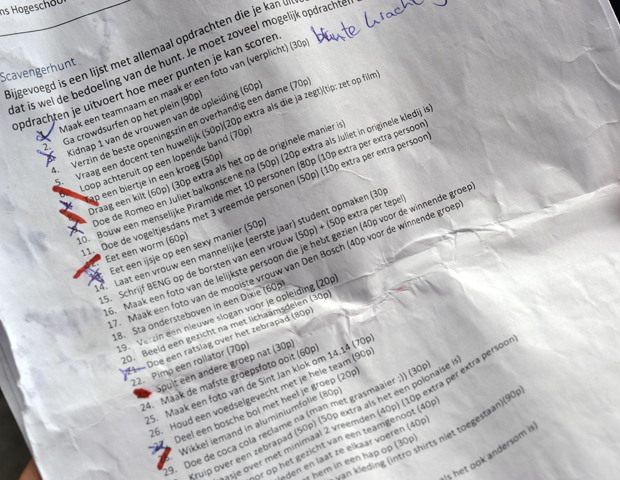 ns Hogeschool
Scavengerhunt
Bijgevoegd is een lijst met allemaal opdrachten die je kan uitvoe
dat is wel de bedoeling van de hunt. Je moet zoveel mogelijk opdrachten
opdrachten je uitvoert hoe meer punten je kan scoren.
Maak een teamnaam en maak er een foto van (verplicht) (30p)
2. Ga crowdsurfen op het plein (90p)
Kidnap 1 van de vrouwen van de opleiding (60p)
4. Verzin de beste openingszin en overhandig een dame (70p)
5. Vraag een docent ten huwelijk (50p)(20p extra als die ja zegt)(tip: zet op film)
Loop achteruit op een lopende band (70p)
Tap een biertje in een kroeg (50p)
Draag een kilt (60p) (30p extra als het op de originele manier is)
Doe de Romeo en Juliet balkonscene na (50p) (20p extra als Juliet in originele kledij is)
10. Bouw een menselijke Piramide met 10 personen (80p (10p extra per extra persoon)
11. Doe de vogeltjesdans met 3 vreemde personen (50p) (10p extra per extra persoon)
12. Eet een worm (60p)
Eet een ijsje op een sexy manier (50p)
14. Laat een vrouw een mannelijke (eerste jaar) student opmaken (30p
15. Schrijf BENG op de borsten van een vrouw (50p) + (50p extra per tepel)
16. Maak een foto van de lelijkste persoon die je hebt gezien (40p voor de winnende groep)
17. Maak een foto van de mooiste vrouw van Den Bosch (40p voor de winnende groep)
18. Sta ondersteboven in een Dixie (60p)
19. Verzin een nieuwe slogan voor je opleiding (20p)
20. Beeld een gezicht na met lichaamsdelen (30p)
Doe een ratslag over het zebrapad (80p)
22. Pimp een rollator (70p)
Spuit een andere groep nat (30p)
24. Maak de mafste groepsfoto ooit (60p)
25. Maak een foto van de Sint Jan klok om 14.14 (70p)
26. Houd een voedselgevecht met je hele team (90p)
Deel een bossche bol met heel je groep (20p)
Wikkel iemand in aluminiumfolie (80p)
29. Doe de coca cola reclame na (man met grasmaaier ;)) (30p)
Kruip over een zebrapad (50p) (50p extra als het een polonaise is)
met minimaal 2 vreemden (40p) (10p extra per extra persoon)
op het gezicht van een teamgenoot (40p)
en laat ze elkaar voeren (40p)
hem in een hap op (30p)
van kleding (intro shirts niet toegestaan)(90p)
als het ook andersom is)